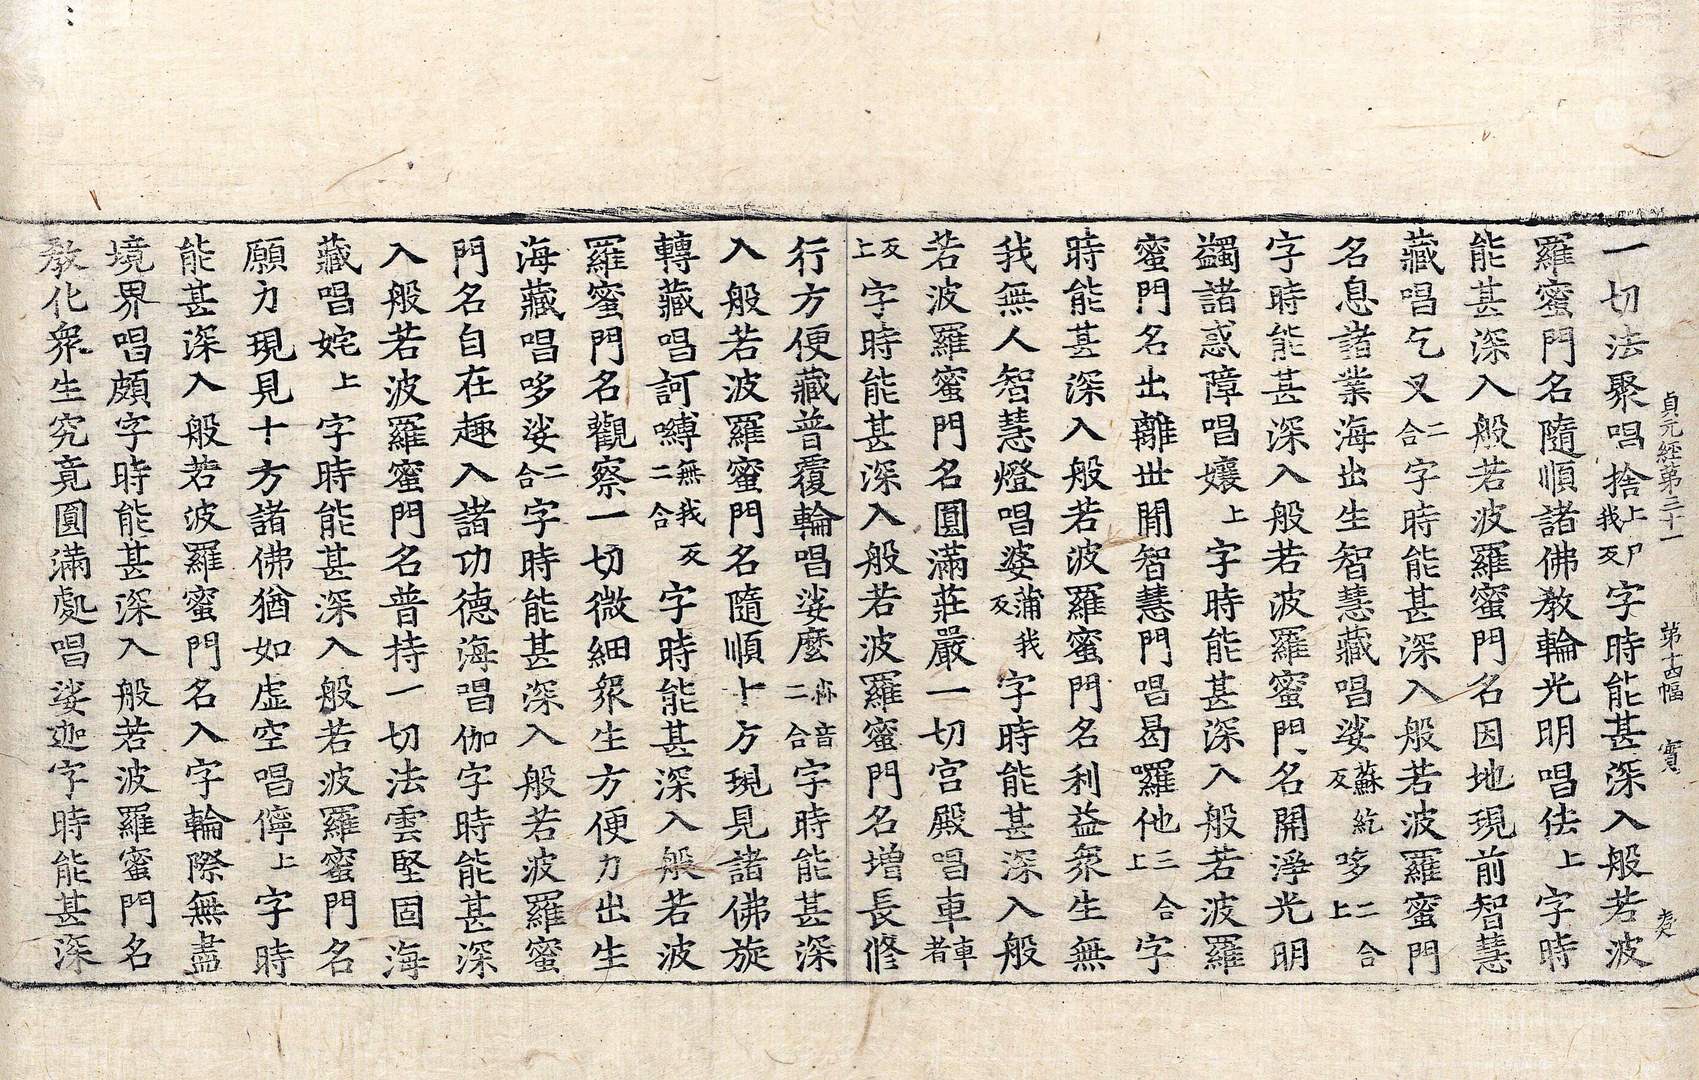 貞元經第三十一　第十四幅　寳
一切法聚唱捨上尸我反字時能甚深入般若波
羅蜜門名隨順諸佛敎輪光明唱佉上字時
能甚深入般若波羅蜜門名因地現前智慧
藏唱乞叉二合字時能甚深入般若波羅蜜門
名息諸業海出生智慧藏唱娑蘇紇反哆上二合
字時能甚深入般若波羅蜜門名開淨光明
蠲諸惑障唱孃上字時能甚深入般若波羅
蜜門名出離世間智慧門唱曷囉他上三合字
時能甚深入般若波羅蜜門名利益衆生無
我無人智慧燈唱婆蒲我反字時能甚深入般
若波羅蜜門名圓滿莊嚴一切宮殿唱車車者
反上字時能甚深入般若波羅蜜門名增長修
行方便藏普覆輪唱娑麼二合字時能甚深
入般若波羅蜜門名隨順十方現見諸佛旋
轉藏唱訶嚩無我反二合字時能甚深入般若波
羅蜜門名觀察一切微細衆生方便力出生
海藏唱哆娑二合字時能甚深入般若波羅蜜
門名自在趣入諸功德海唱伽字時能甚深
入般若波羅蜜門名普持一切法雲堅固海
藏唱姹上字時能甚深入般若波羅蜜門名
願力現見十方諸佛猶如虛空唱儜上字時
能甚深入般若波羅蜜門名入字輪際無盡
境界唱頗字時能甚深入般若波羅蜜門名
敎化衆生究竟圓滿處唱娑迦字時能甚深